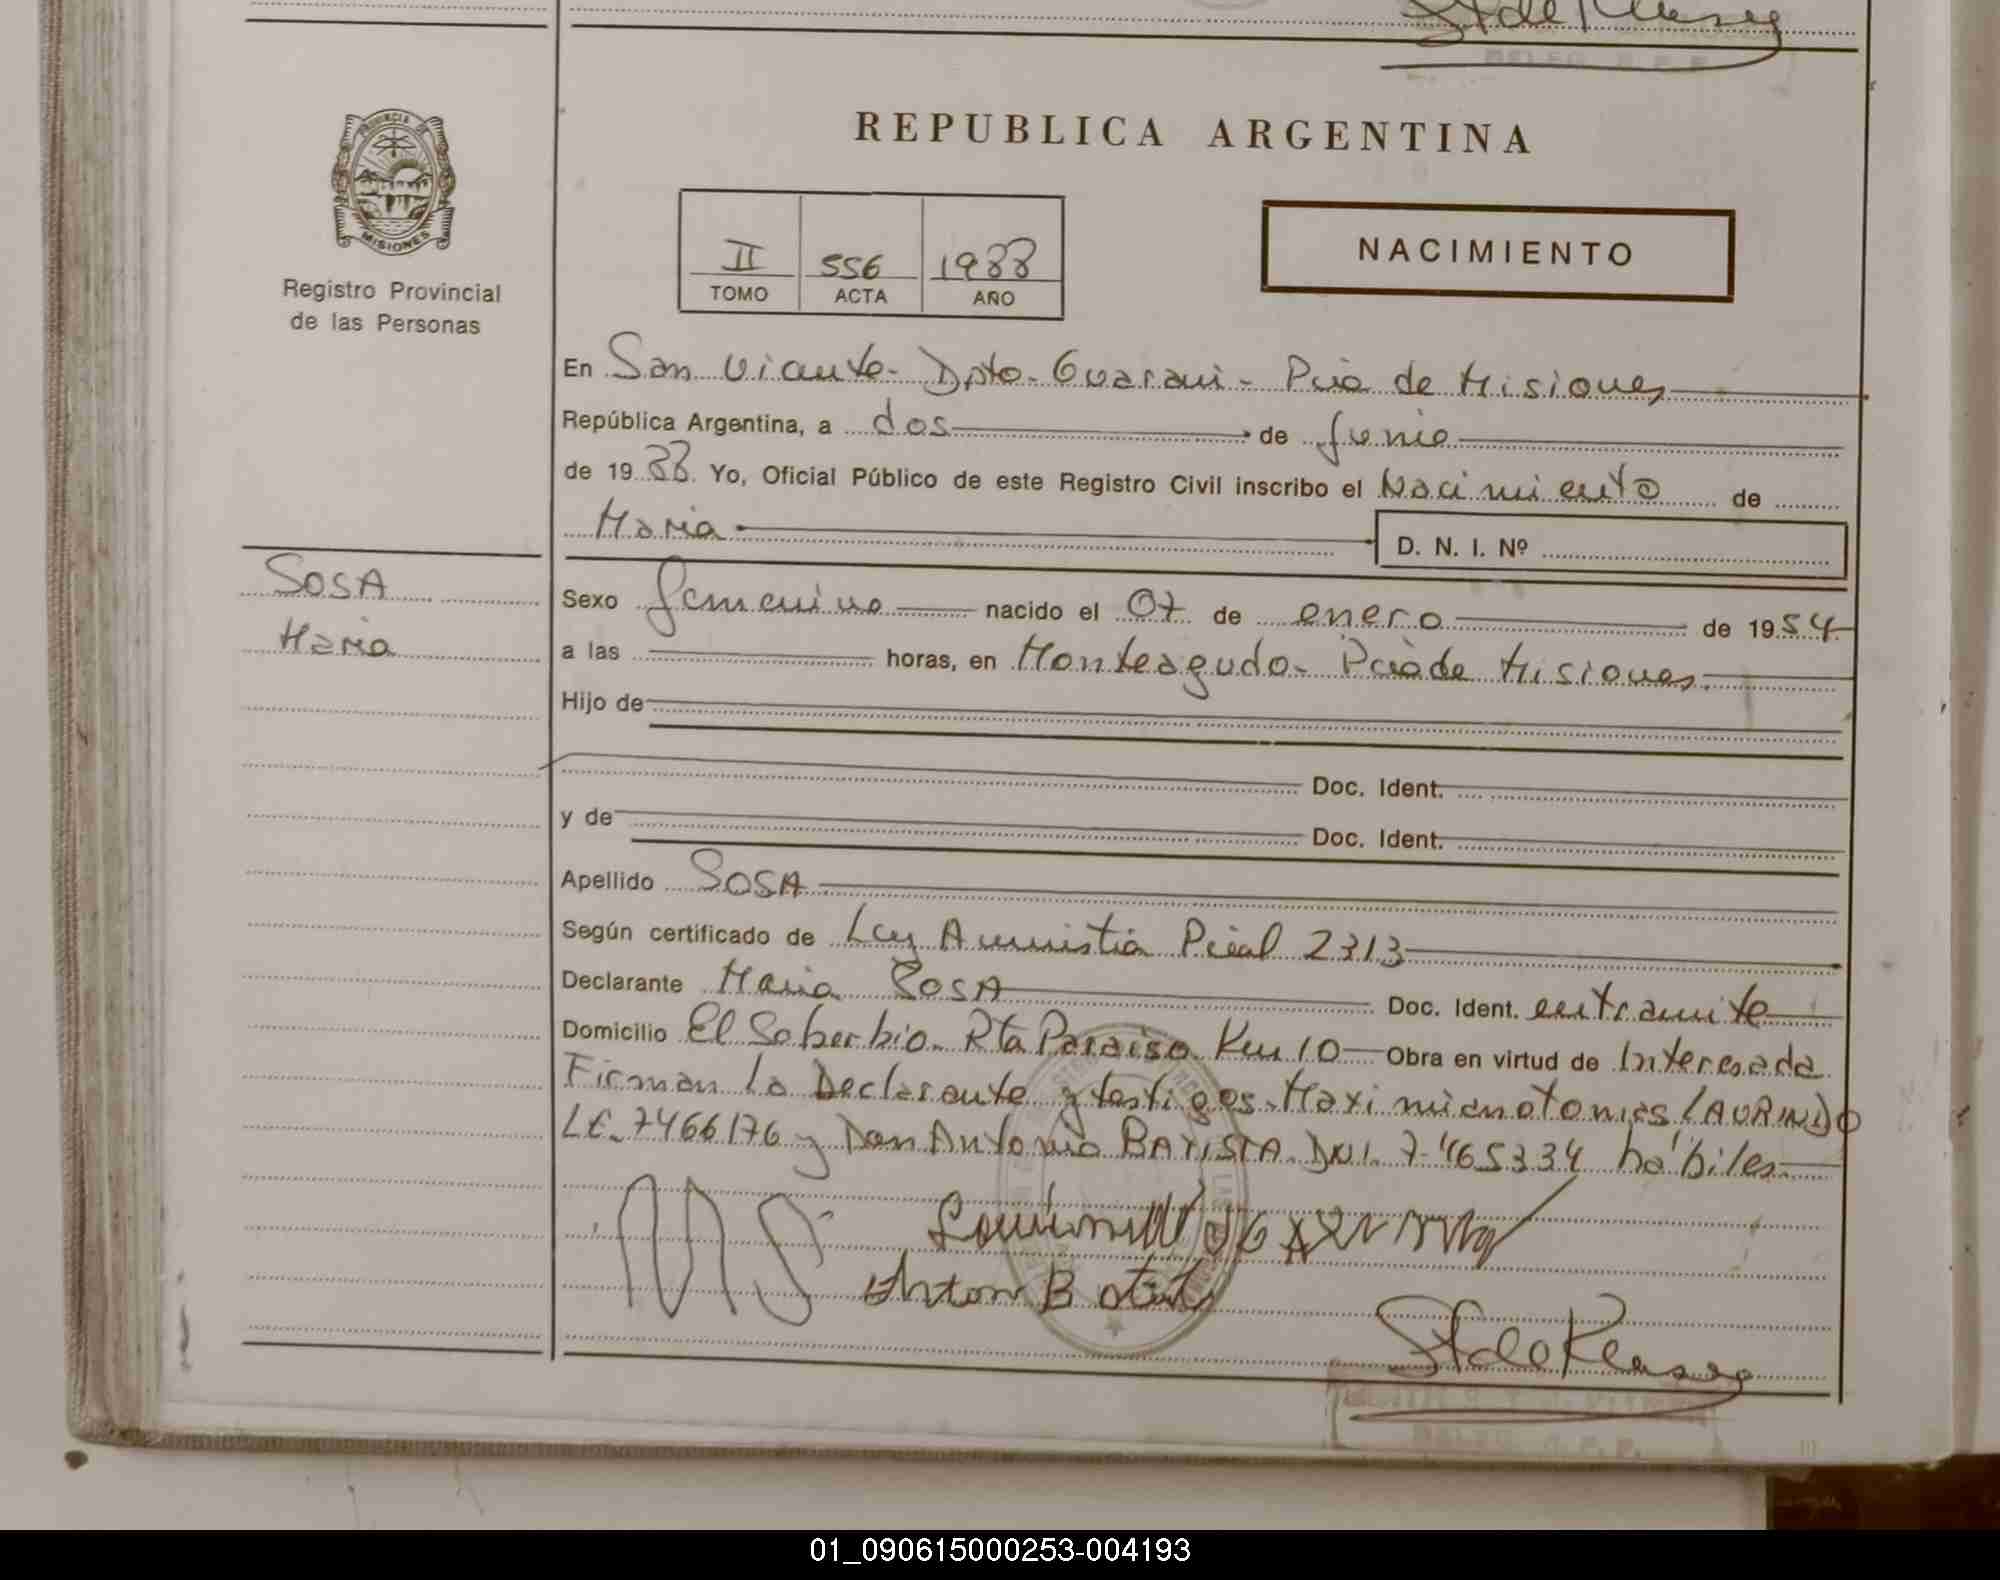 REPUBLICA ARGENTINA
PROVINCIA DE
MISIONES
Registro Provincial
de las Personas
II 556 1988
TOMO ACTA AÑO
NACIMIENTO
En San Vicente - Dpto - Guarani - Pcia de Misiones
República Argentina, a dos de junio
de 1988. Yo, Oficial Público de este Registro Civil inscribo el Nacimiento de
Maria D. N. I. Nº
SOSA
Maria
Sexo femenino nacido el 07 de enero de 1954
a las horas, en Monteagudo - Pcia de Misiones.
Hijo de
Doc. Ident.
y de Doc. Ident.
Apellido SOSA
Según certificado de Ley Amnistia Pcial 2313
Declarante Maria SOSA Doc. Ident. en tramite
Domicilio El Soberbio - Rta Paraiso Km 10 Obra en virtud de Interesada
Firman la Declarante y testigos - Maximiano Tomas LAURINDO
LE. 7466176 y Don Antonio BATISTA. DNI. 7.465334 hábiles
MS
Anton Batist
01_090615000253-004193